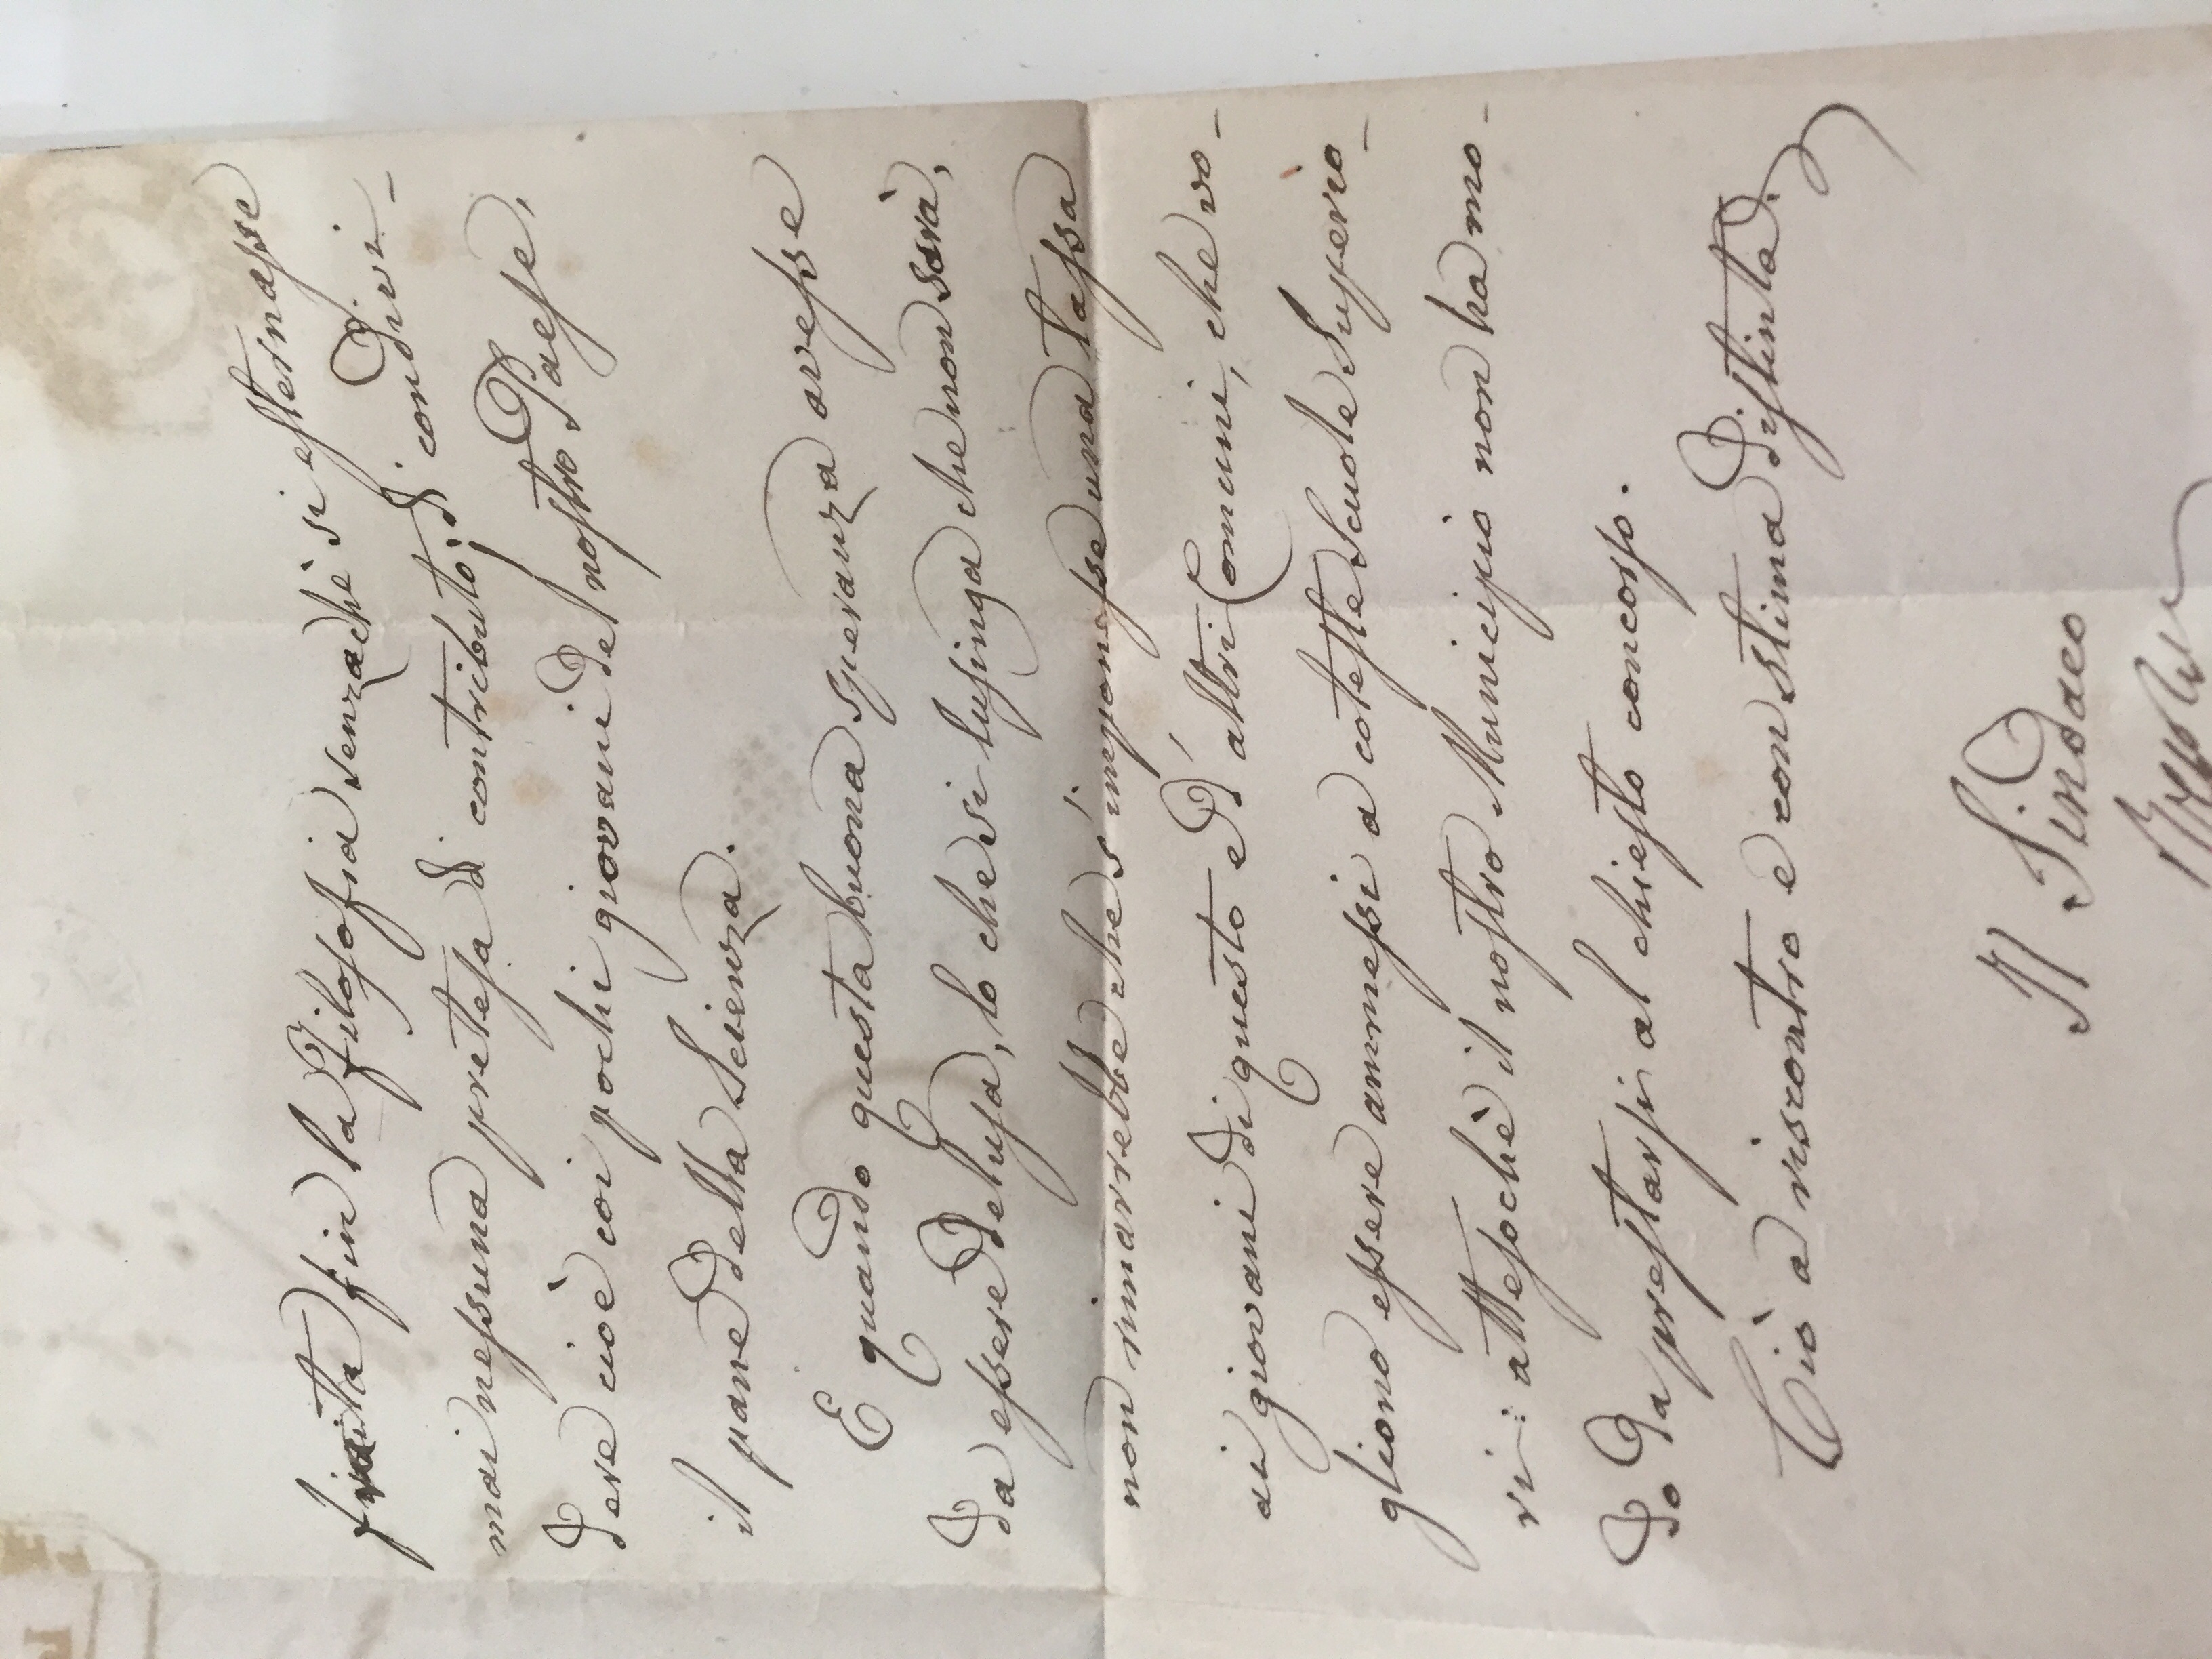 finita fin la Filosofia senzachè si esternasse
mai nessuna pretesa di contributo di condivi-
dere cioè coi pochi giovani del nostro Paese,
il pane della Scienza.
E quando questa buona speranza avesse
da essere delusa, lo che si lusinga che non sarà,
non rimarrebbe che s'imponesse una tassa
ai giovani di questo e d'altri Comuni, che vo-
gliono essere ammessi a coteste Scuole Superio-
ri: attesochè il nostro Municipio non ha mo-
do da prestarsi al chiesto concorso.
Ciò a riscontro e con stima distinta.
Il Sindaco